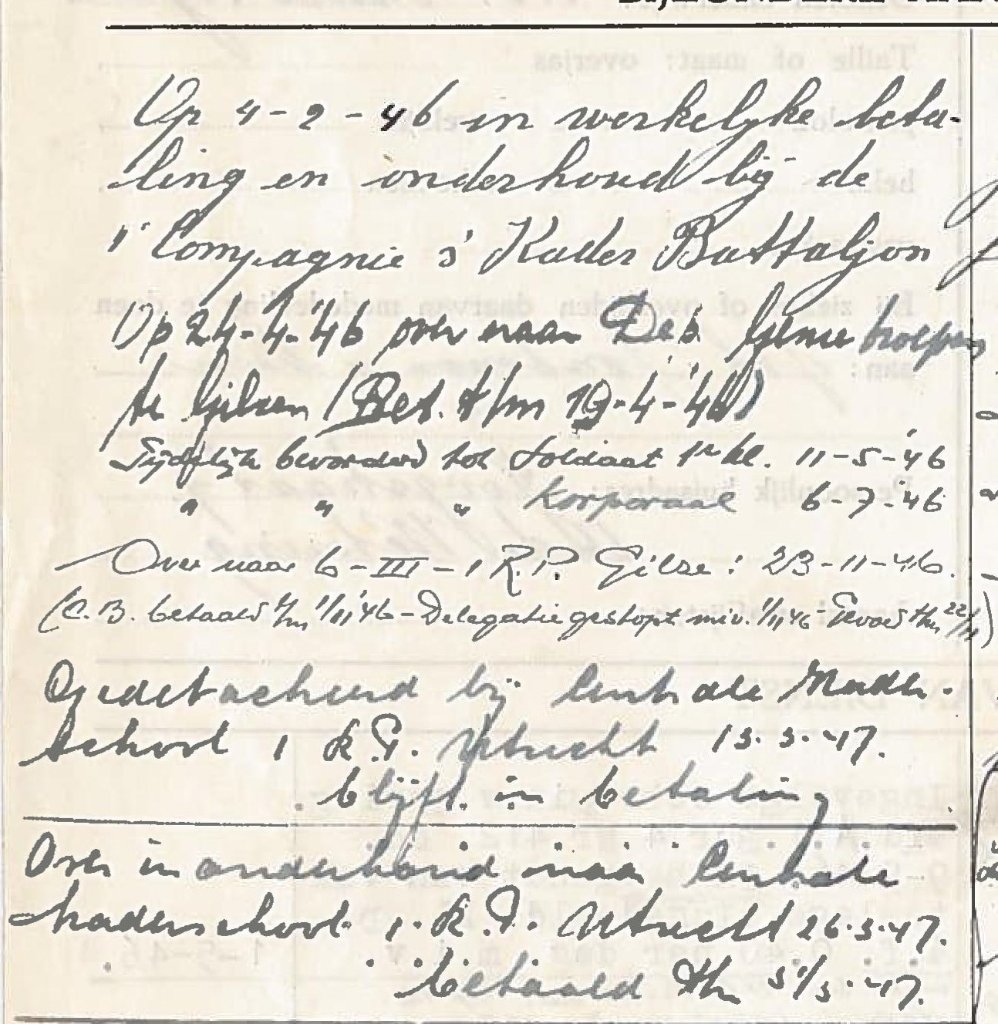 Op 4-2-46 in werkelijke beta-
ling en onderhoud bij de
1e Compagnie 3e Kader Battaljon
Op 24-4-46 over naar Genie troepen
te Gilzen (Bet. t/m 19-4-'46)
Tijdelijk bevorderd tot Soldaat 1e kl. 11-5-'46
" " " Korporaal 6-7-'46
Over naar 6-III-1 R.P. Gilze: 23-11-'46.
(C.B. betaald t/m 1/11 '46 - Delegatie gestopt m.i.v. 1/11 46 - t/m 22/11)
Gedetacheerd bij Centrale Kader-
school Utrecht 13.3.47.
blijft in betaling.
Over in onderhoud naar Centrale
Kaderschool Utrecht 26.3.47.
betaald t/m 31/3.47.